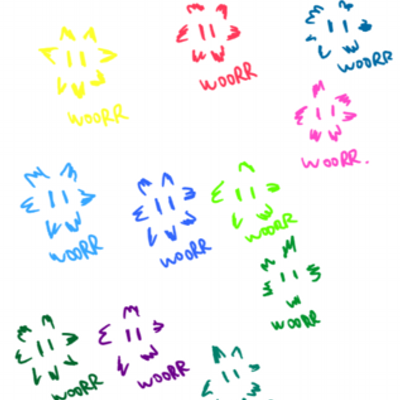 WOORR
WOORR
WOORR
WOORR.
WOORR
WOORR
WOORR
WOORR
WOORR
WOORR